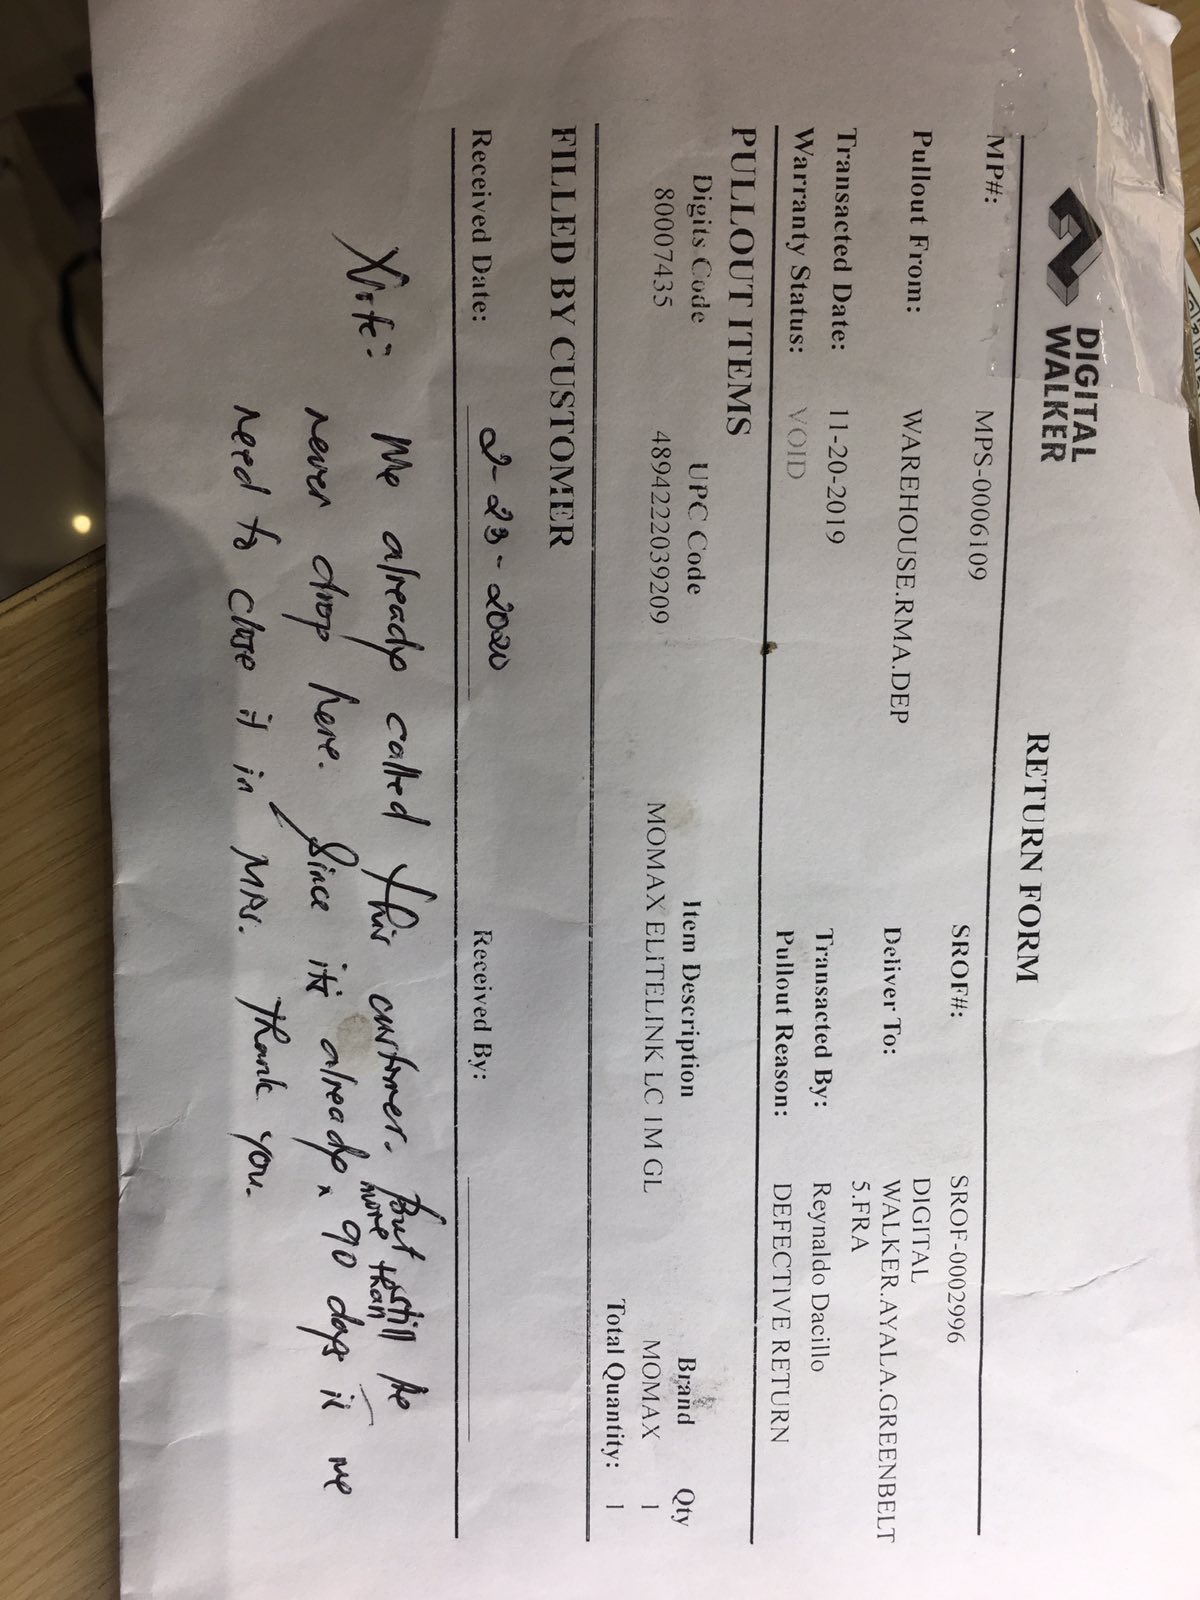 DIGITAL
WALKER
RETURN FORM
MP#: MPS-0006109 SROF#: SROF-0002996
Pullout From: WAREHOUSE.RMA.DEP Deliver To: DIGITAL
WALKER.AYALA.GREENBELT
5.FRA
Transacted Date: 11-20-2019 Transacted By: Reynaldo Dacillo
Warranty Status: VOID Pullout Reason: DEFECTIVE RETURN
PULLOUT ITEMS
Digits Code UPC Code Item Description Brand Qty
80007435 4894222039209 MOMAX ELITELINK LC 1M GL MOMAX 1
Total Quantity: 1
FILLED BY CUSTOMER
Received Date: 2-23-2020 Received By:
Note: We already called this customer. But still he
never drop here. Since its already more than 90 days
need to close it in MPS. Thank you.